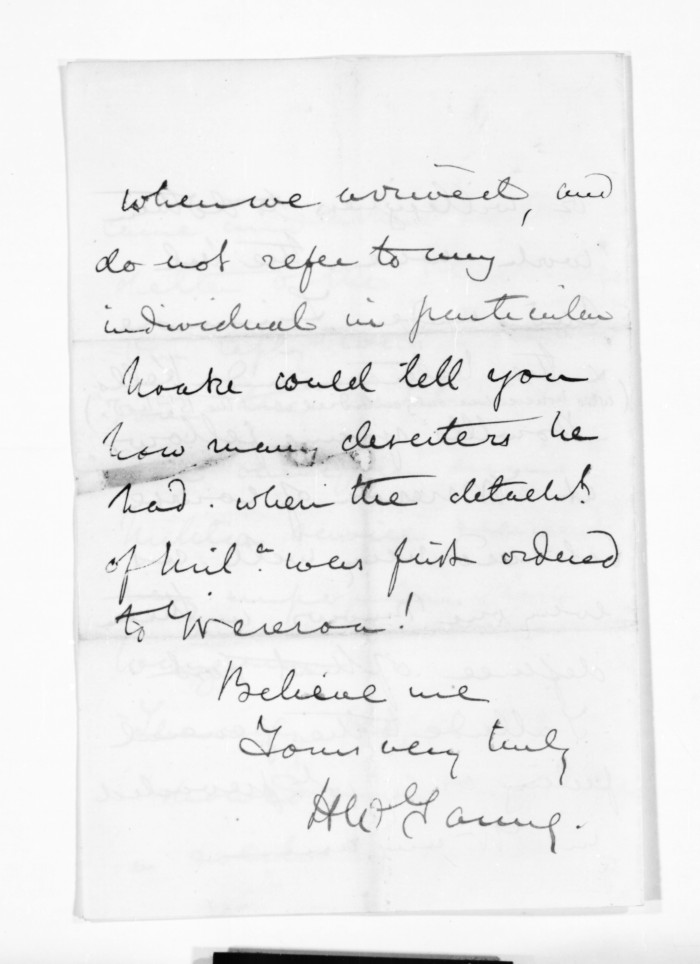 when we arrived, and
do not refer to any
individual in particular
could tell you
how many deserters he
had. when the detacht.
of Mila. was first ordered
to Wereroa!
Believe me
Yours very truly
H W